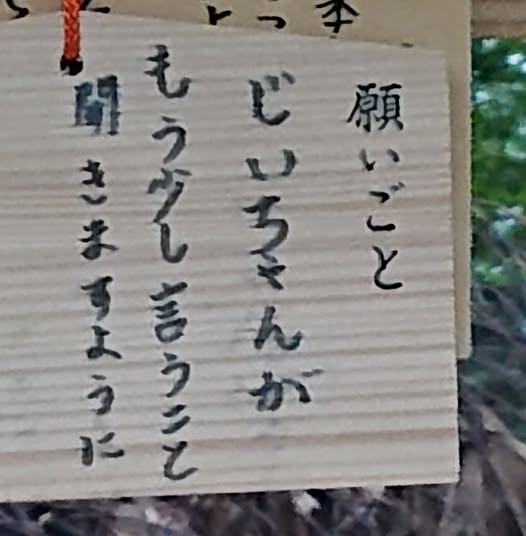 願いごと
じいちゃんが
もう少し言うこと
聞きますように